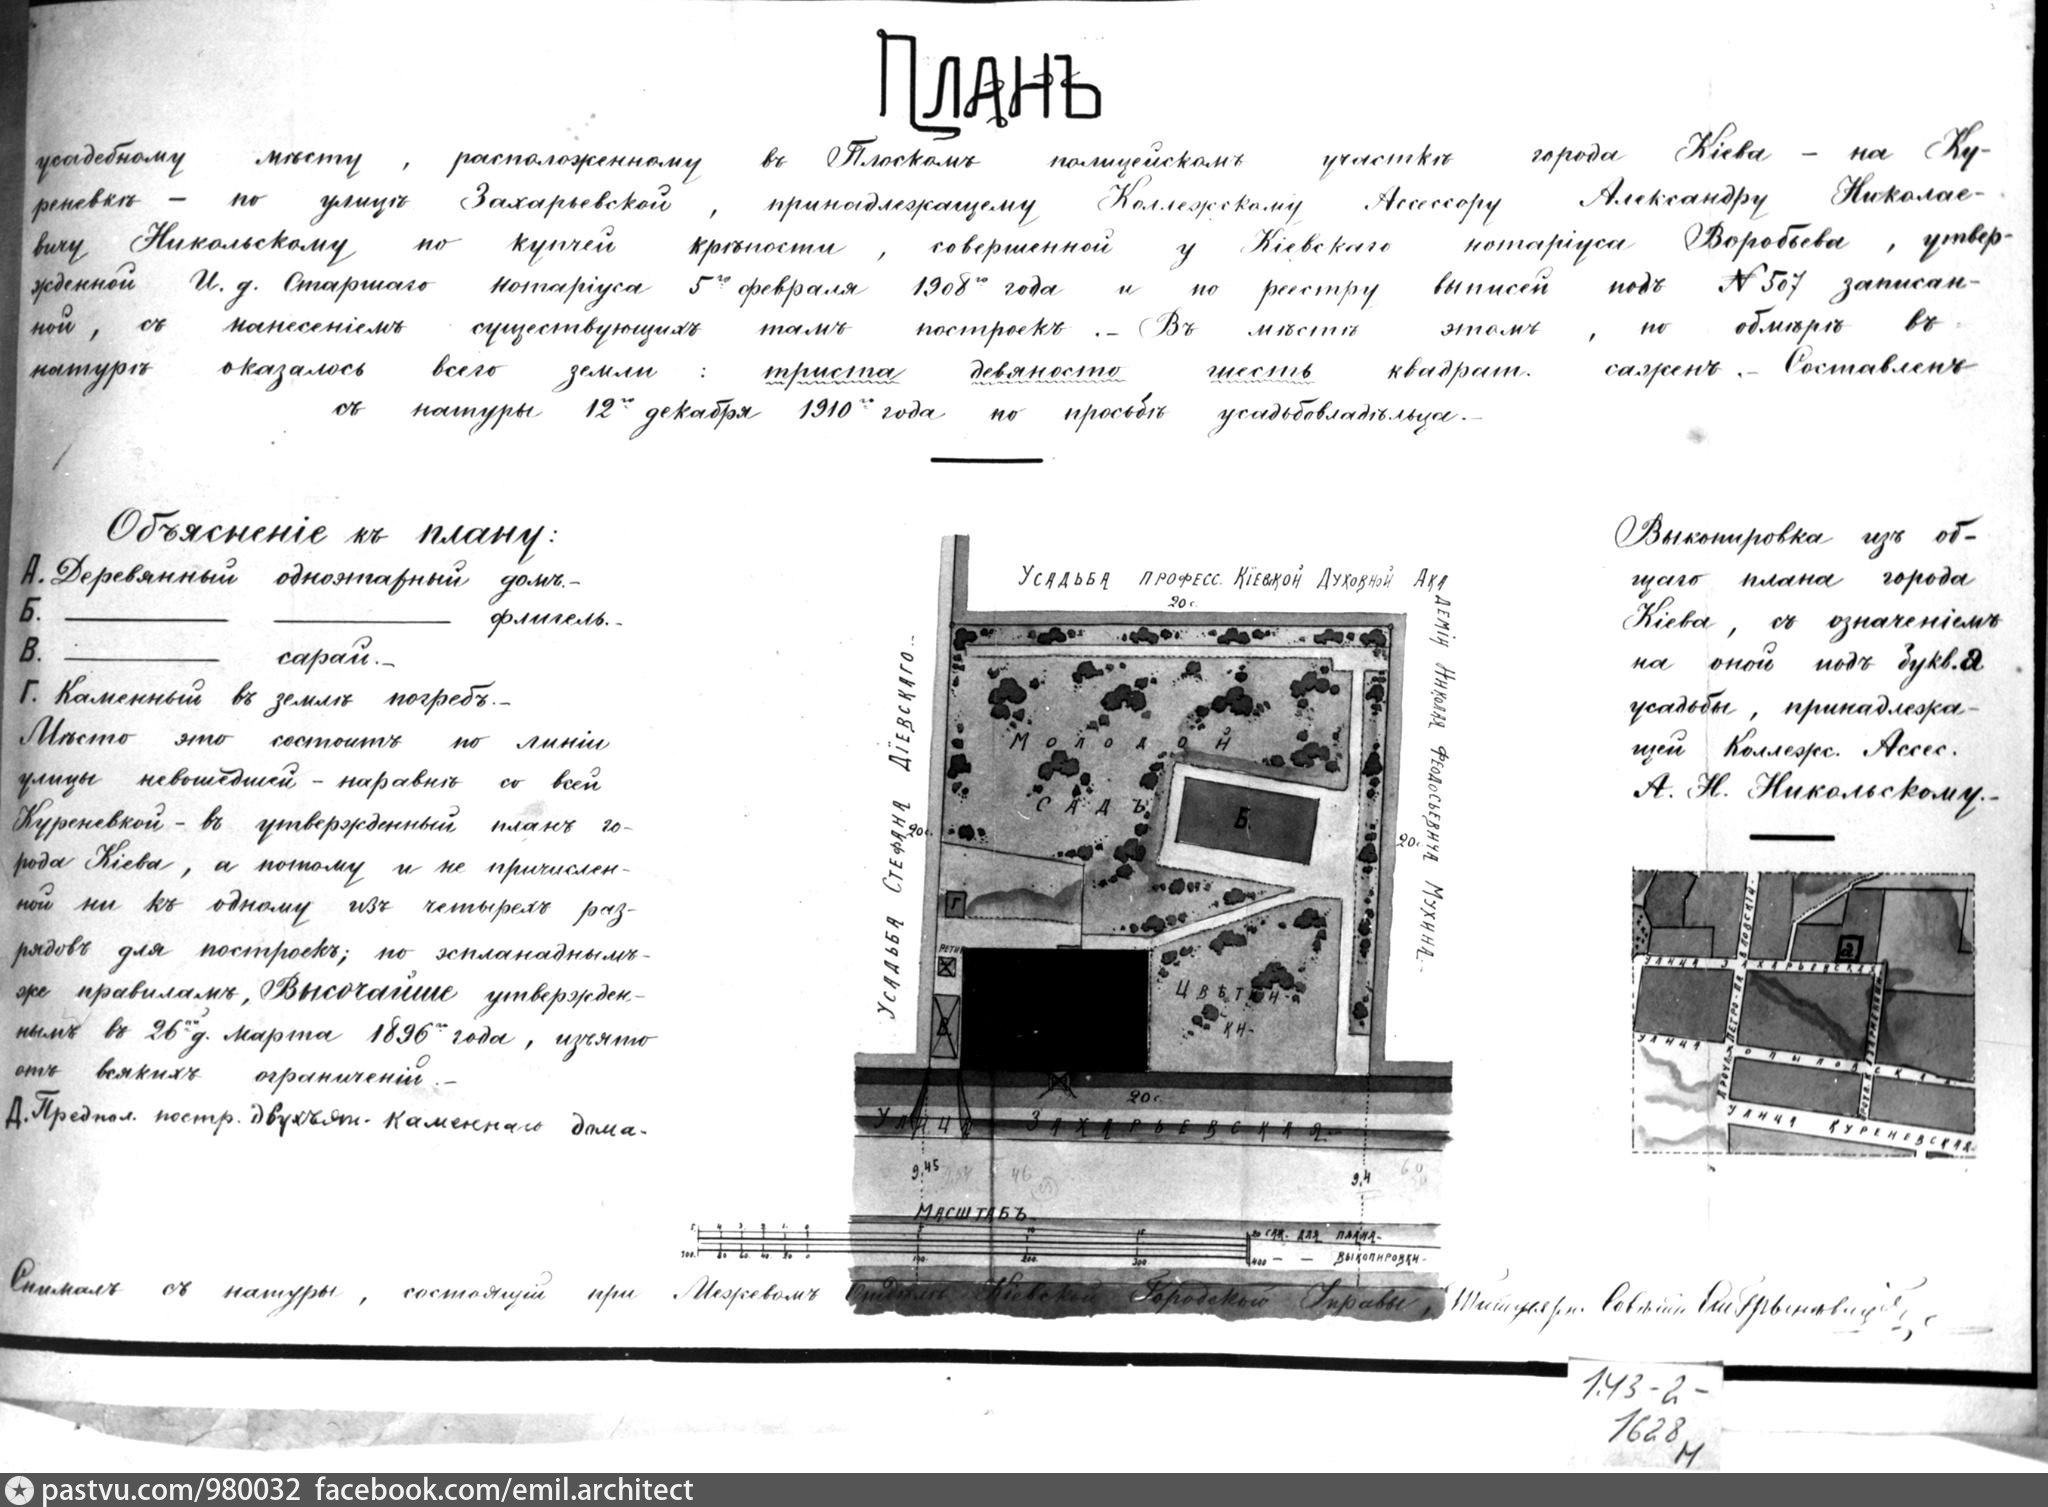 Планъ
усадебному мѣсту, расположенному въ Плоскомъ полицейскомъ участкѣ города Кіева – на Ку-
реневкѣ – по улицѣ Захарьевской, принадлежащему Коллежскому Ассессору Александру Николае-
вичу Никольскому по купчей крѣпости, совершенной у Кіевскаго нотаріуса Воробьева, утвер-
жденной И. д. Старшаго нотаріуса 5го февраля 1908го года и по реестру выписей подъ № 507 записан-
ной, съ нанесеніемъ существующихъ тамъ построекъ. – Въ мѣстѣ этомъ, по обмѣрѣ въ
натурѣ оказалось всего земли: триста девяносто шесть квадрат. сажень. – Составленъ
съ натуры 12го декабря 1910го года по просьбѣ усадьбовладѣльца. –
Объясненіе къ плану:
А. Деревянный одноэтажный домъ. –
Б. флигель. –
В. сарай. –
Г. Каменный въ землѣ погребъ. –
Мѣсто это состоитъ по линіи
улицы невошедшей – наравнѣ со всей
Куреневкой – въ утвержденный планъ го-
рода Кіева, а потому и не причислен-
ной ни къ одному изъ четырехъ раз-
рядовъ для построекъ; по эспланаднымъ-
же правиламъ, Высочайше утвержден-
нымъ въ 26го д. марта 1896го года, изъято
отъ всякихъ ограниченій. –
Д. Предпол. постр. двухъэт. каменнаго дома –
Усадьба професс. Кіевской Духовной Ака
деміи Николая Федосѣевича Мухина. –
20 с.
Усадьба Стефана Діевскаго. –
20 с.
20 с.
Молодой
Садъ
Б
Г
В
Цвѣтни-
ки –
20 с.
Улица Захарьевская. –
9,45
46
9,4
Масштабъ.
5 4 3 2 1 0 5 10 15 20 саж. для плана –
100 80 60 40 20 0 100 200 300 400 – – выкопировки –
Выкопировка изъ об-
щаго плана города
Кіева, съ означеніемъ
на оной подъ букв. а
усадьбы, принадлежа-
щей Коллежс. Ассес.
А. Н. Никольскому. –
а
Улица Захарьевская
Улица Копыловская
Улица Куреневская
Снималъ съ натуры, состоящій при Межевомъ Отдѣлѣ Кіевской Городской Управы,
143-2-
1628
м
pastvu.com/980032 facebook.com/emil.architect